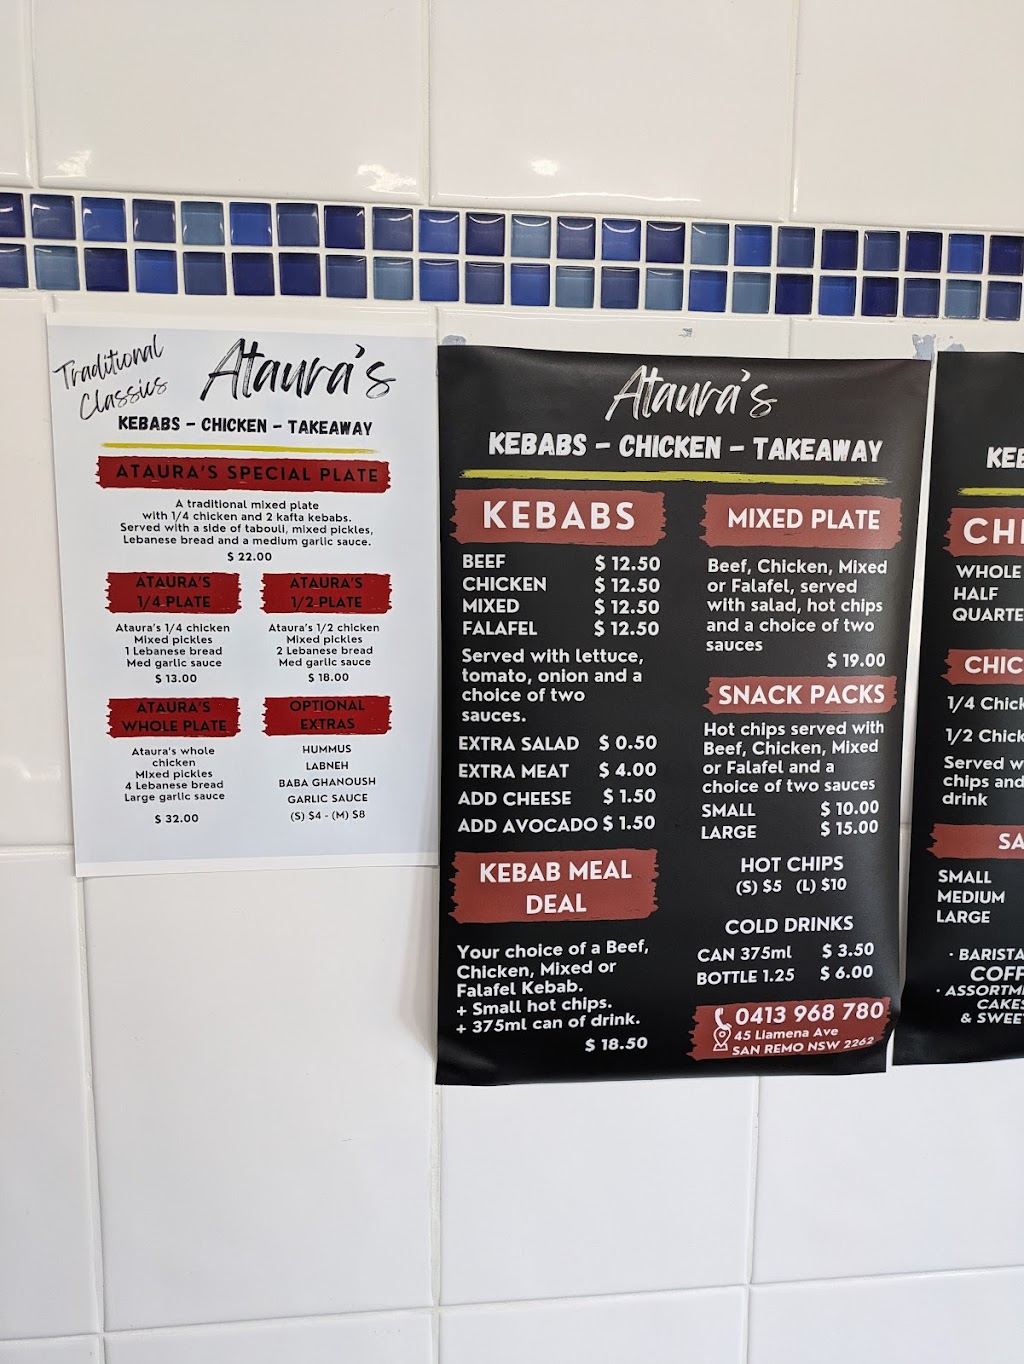 Traditional
Classics
Ataura's
KEBABS - CHICKEN - TAKEAWAY
ATAURA'S SPECIAL PLATE
A traditional mixed plate
with 1/4 chicken and 2 kafta kebabs.
Served with a side of tabouli, mixed pickles,
Lebanese bread and a medium garlic sauce.
$ 22.00
ATAURA'S
1/4 PLATE
Ataura's 1/4 chicken
Mixed pickles
1 Lebanese bread
Med garlic sauce
$ 13.00
ATAURA'S
1/2 PLATE
Ataura's 1/2 chicken
Mixed pickles
2 Lebanese bread
Med garlic sauce
$ 18.00
ATAURA'S
WHOLE PLATE
Ataura's whole
chicken
Mixed pickles
4 Lebanese bread
Large garlic sauce
$ 32.00
OPTIONAL
EXTRAS
HUMMUS
LABNEH
BABA GHANOUSH
GARLIC SAUCE
(S) $4 - (M) $8
Ataura's
KEBABS - CHICKEN - TAKEAWAY
KEBABS
BEEF $ 12.50
CHICKEN $ 12.50
MIXED $ 12.50
FALAFEL $ 12.50
Served with lettuce,
tomato, onion and a
choice of two
sauces.
EXTRA SALAD $ 0.50
EXTRA MEAT $ 4.00
ADD CHEESE $ 1.50
ADD AVOCADO $ 1.50
KEBAB MEAL
DEAL
Your choice of a Beef,
Chicken, Mixed or
Falafel Kebab.
+ Small hot chips.
+ 375ml can of drink.
$ 18.50
MIXED PLATE
Beef, Chicken, Mixed
or Falafel, served
with salad, hot chips
and a choice of two
sauces
$ 19.00
SNACK PACKS
Hot chips served with
Beef, Chicken, Mixed
or Falafel and a
choice of two sauces
SMALL $ 10.00
LARGE $ 15.00
HOT CHIPS
(S) $5 (L) $10
COLD DRINKS
CAN 375ml $ 3.50
BOTTLE 1.25 $ 6.00
0413 968 780
45 Liamena Ave
SAN REMO NSW 2262
KEB
CHI
WHOLE
HALF
QUARTE
CHIC
1/4 Chick
1/2 Chick
Served w
chips and
drink
SA
SMALL
MEDIUM
LARGE
· BARISTA
COFF
· ASSORTM
CAKES
& SWEET